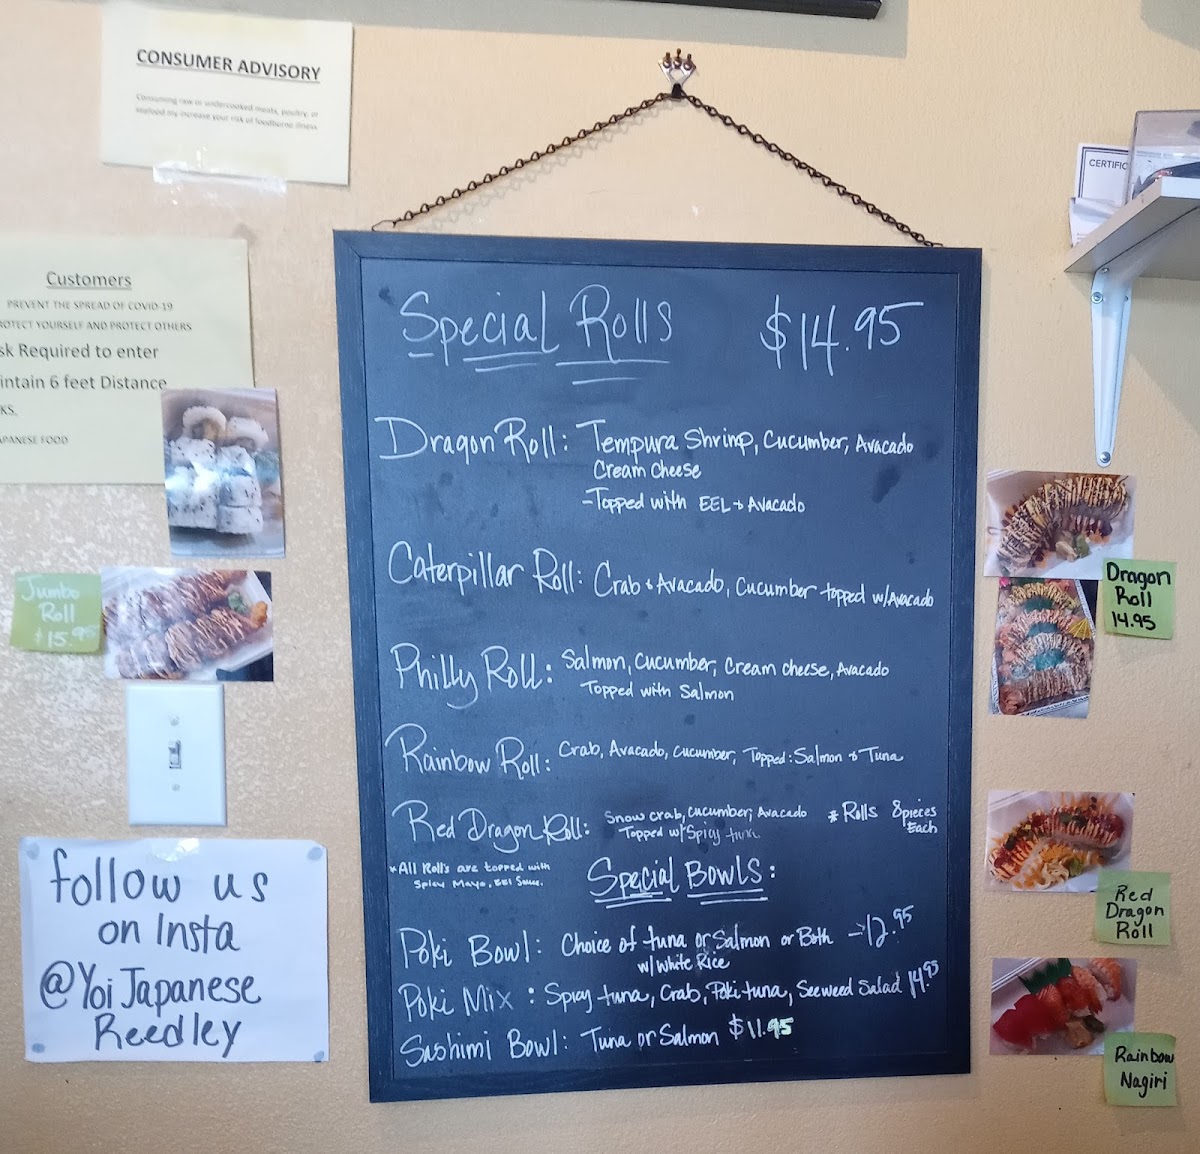 CONSUMER ADVISORY
Consuming raw or undercooked meats, poultry, or
seafood my increase your risk of foodborne illness
CERTIFIC
Customers
PREVENT THE SPREAD OF COVID-19
ROTECT YOURSELF AND PROTECT OTHERS
sk Required to enter
intain 6 feet Distance
KS.
APANESE FOOD
Special Rolls $14.95
Dragon Roll: Tempura Shrimp, Cucumber, Avacado
Cream Cheese
-Topped with EEL & Avacado
Caterpillar Roll: Crab & Avacado, Cucumber topped w/Avacado
Philly Roll: Salmon, Cucumber, Cream cheese, Avacado
Topped with Salmon
Rainbow Roll: Crab, Avacado, Cucumber, Topped: Salmon & Tuna
Red Dragon Roll: Snow crab, Cucumber, Avacado
Topped w/ Spicy tuna
* Rolls 8 pieces
Each
*All Roll's are topped with
Spicy Mayo, EEl Sauce.
Special Bowls:
Poki Bowl: Choice of tuna or Salmon or Both -12.95
w/ White Rice
Poki Mix: Spicy tuna, Crab, Poki tuna, Seeweed Salad 14.95
Sashimi Bowl: Tuna or Salmon $11.95
Jumbo
Roll
$15.95
follow us
on Insta
@YoiJapanese
Reedley
Dragon
Roll
14.95
Red
Dragon
Roll
Rainbow
Nagiri